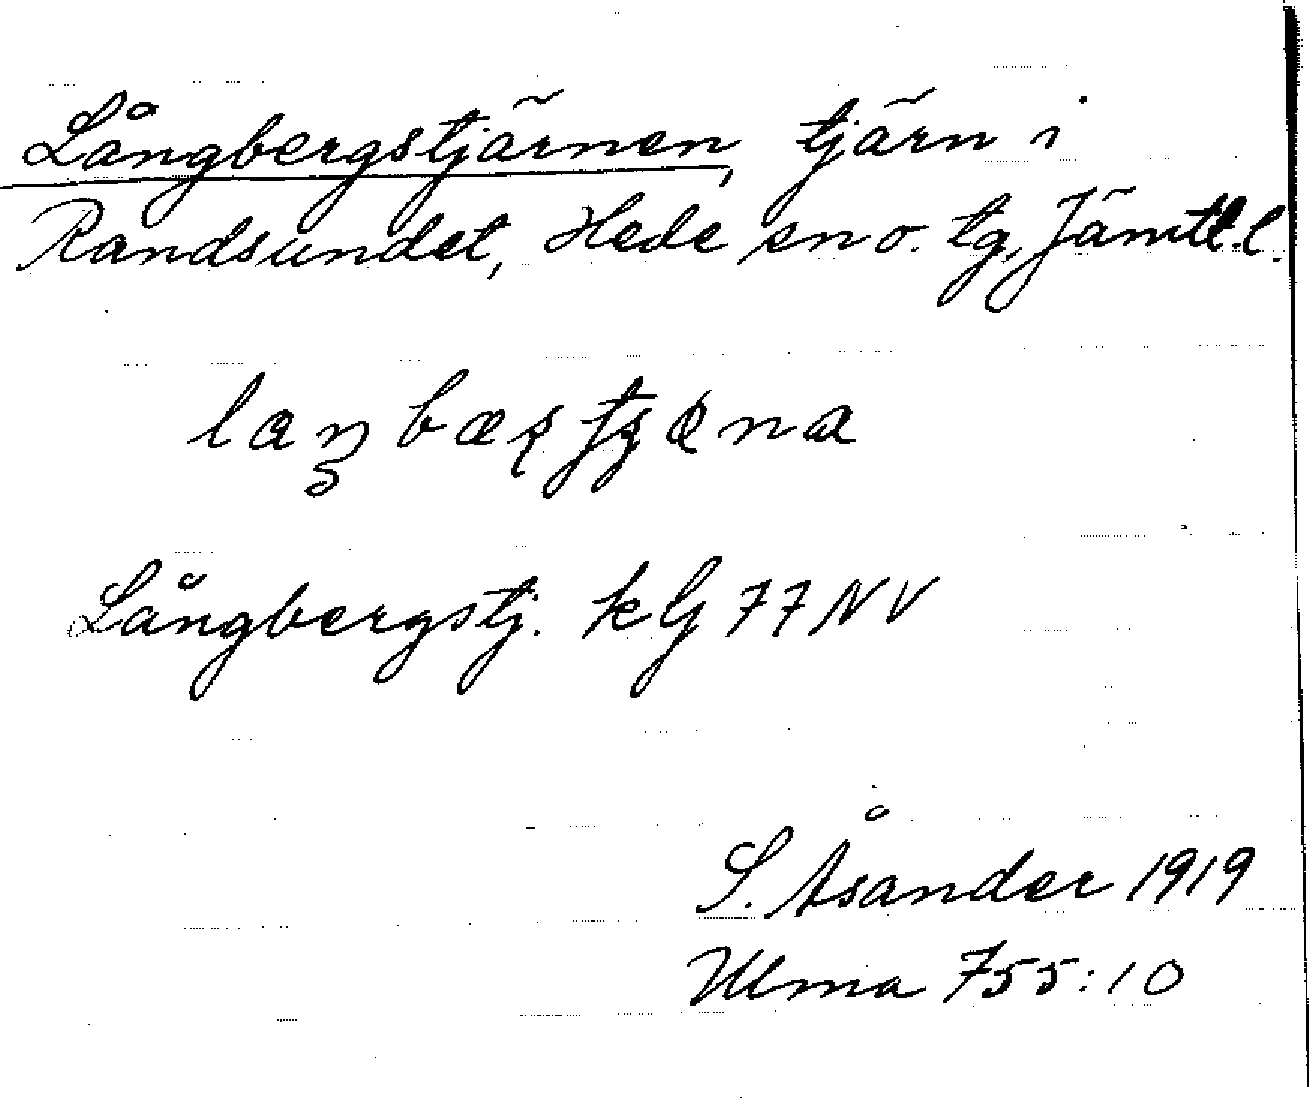 Långbergstjärnen, tjärn i
Randsundet, Hede sn o. tg, Jämtl.l.
Långbergstj. kG 77 NV
S. Åsander 1919
Ulma 755:10